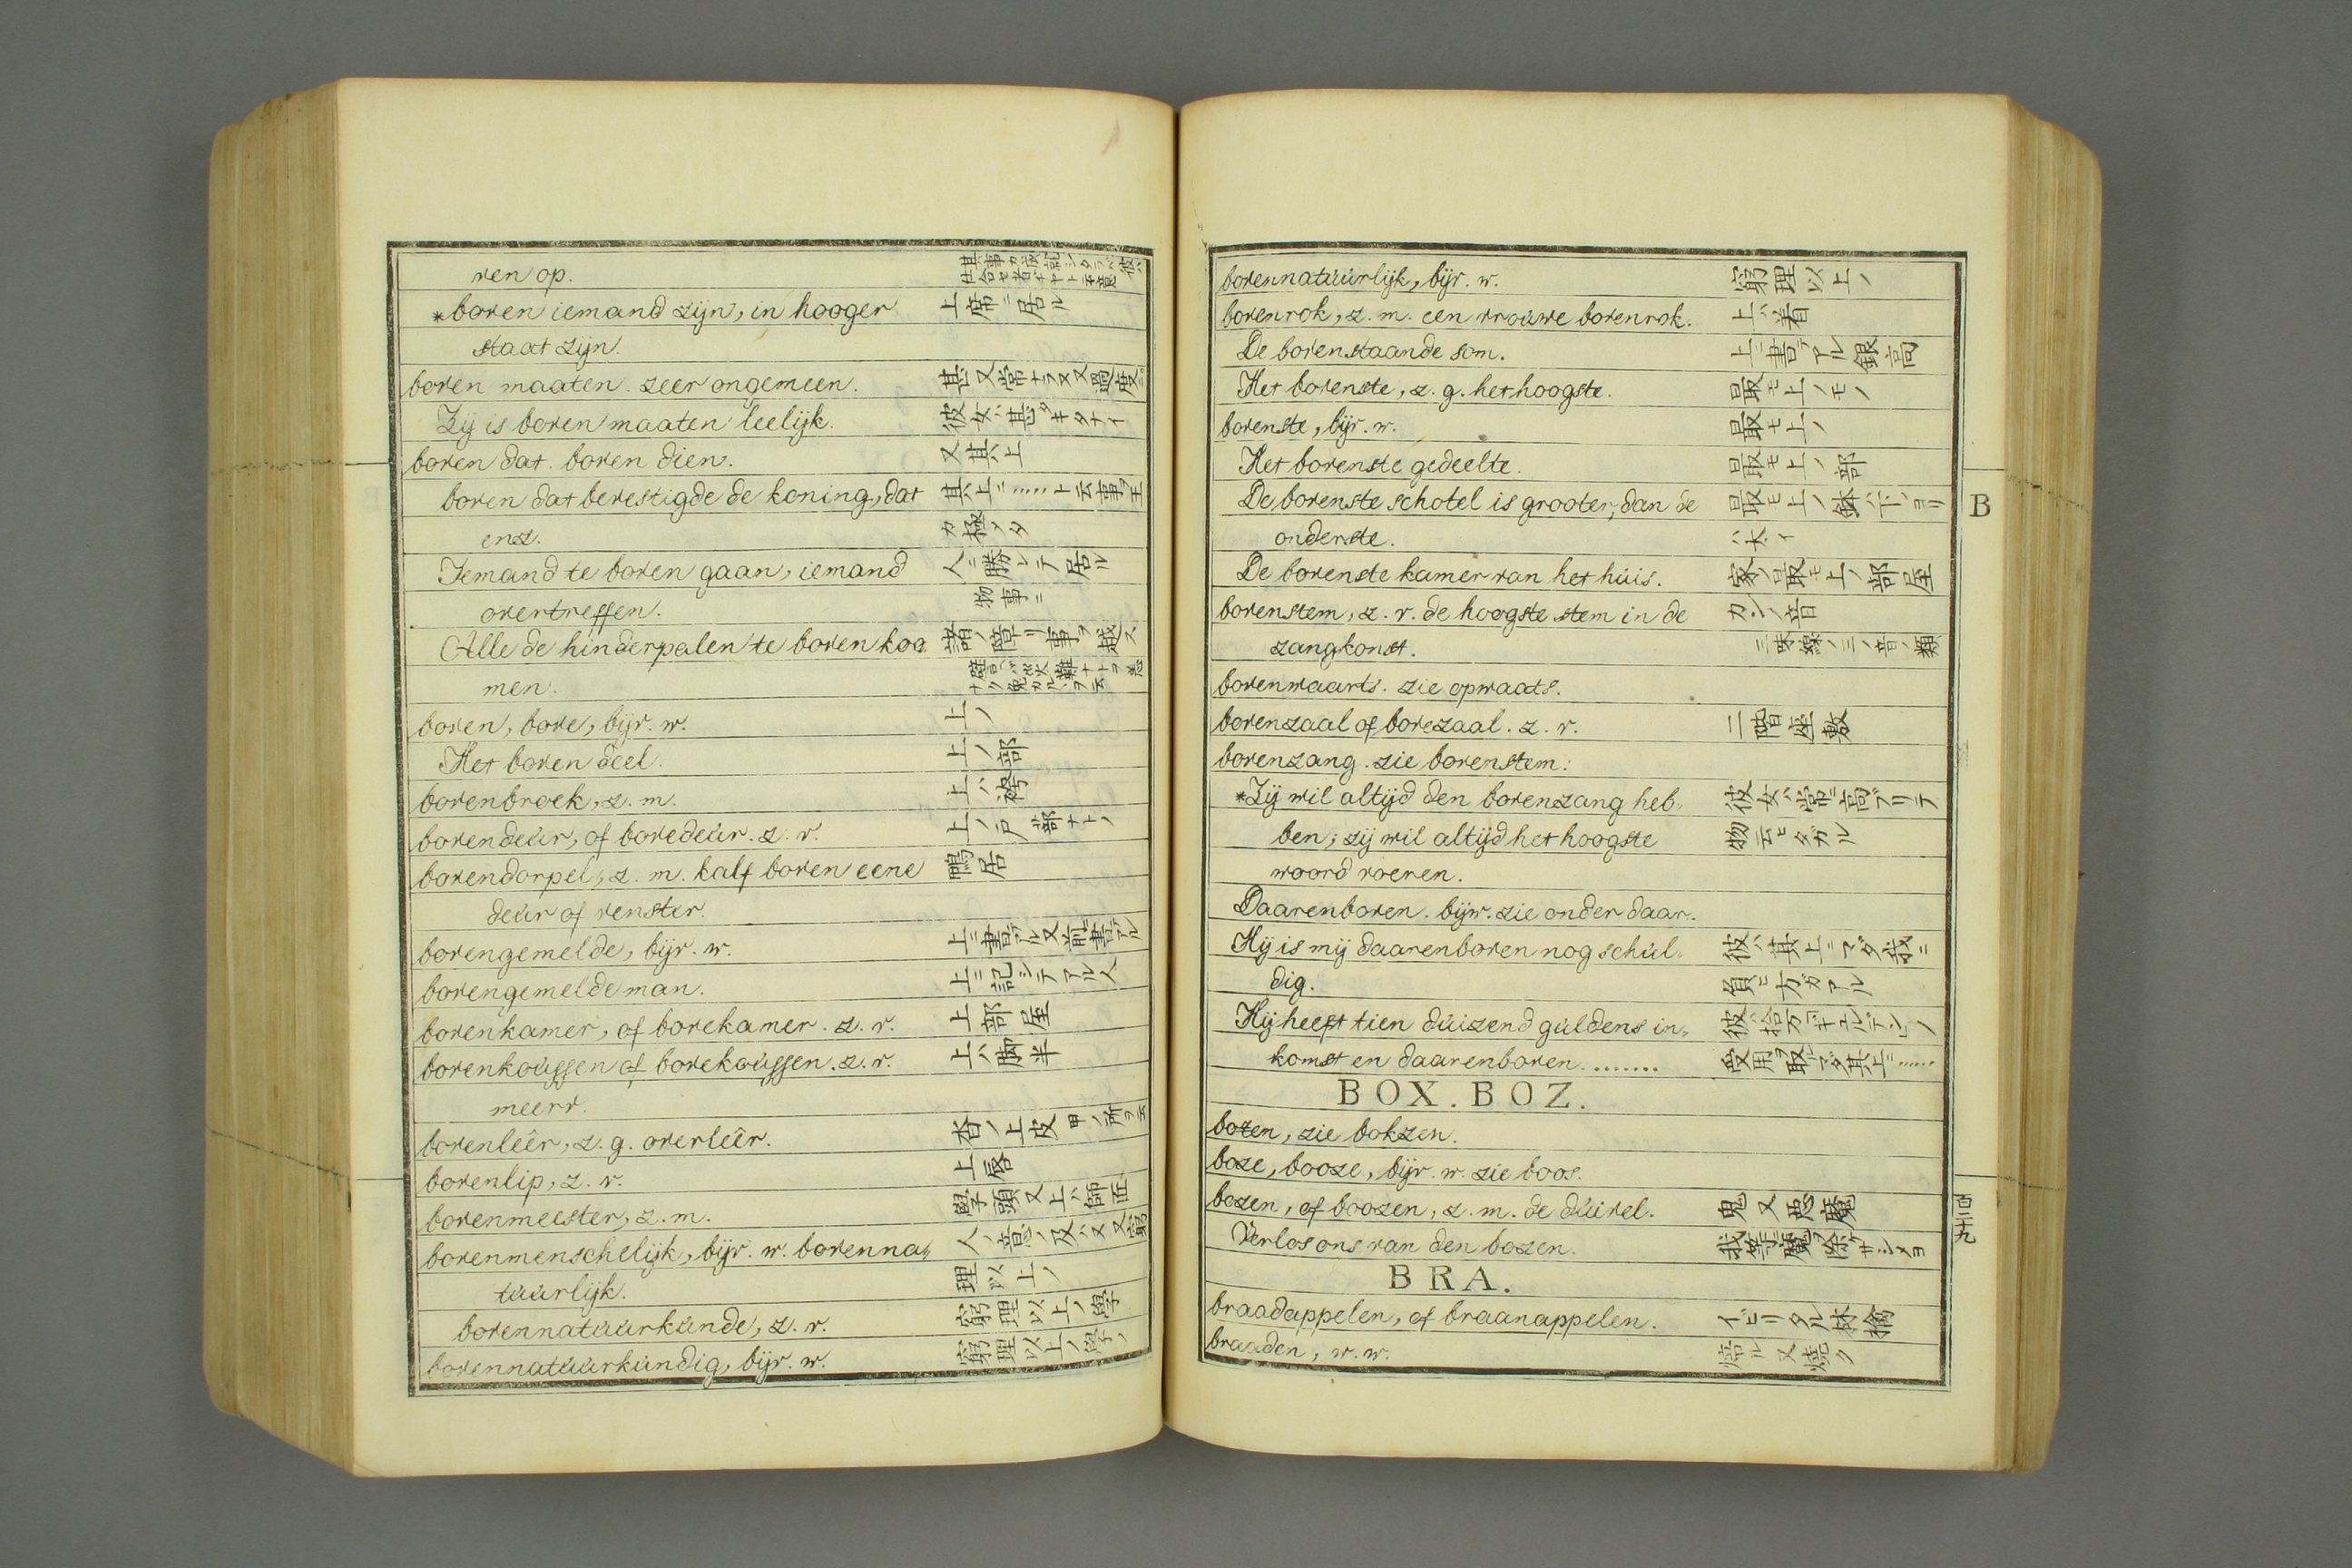 ven op.
*boven iemand zijn, in hooger 上席ニ居ル
staat zijn.
boven maaten. zeer ongemeen. 甚又常ナラヌ又過度ニ
Zij is boven maaten leelijk. 彼女ハ甚ダキタナイ
boven dat. boven dien. 又其上
boven dat bevestigde de koning, dat 其上ニ……ト云事ヲ王
enz. カ極メタ
Iemand te boven gaan, iemand 人ニ勝レテ居ル
overtreffen. 物事ニ
Alle de hinderpalen te boven koo„ 諸ノ障リ事ヲ越ス
men.
boven, bove, bijv. w. 上ノ
Het boven deel. 上ノ部
bovenbroek, z. m. 上ハ袴
bovendeúr, of bovedeúr. z. v. 上ノ戸
bovendorpel, z. m. kalf boven eene 鴨居
deúr of venster.
bovengemelde, bijv. w. 上ニ書テアル又前ニ書テアル
bovengemelde man. 上ニ記シテアル人
bovenkamer, of bovekamer. z. v. 上部屋
bovenkoússen of bovekoússen. z. v. 上ハ脚半
meerv.
bovenleêr, z. g. overleêr. 沓ノ上皮 甲ノ所ヲ云
bovenlip, z. v. 上唇
bovenmeester, z. m. 學頭又上ハ師匠
bovenmenschelijk, bijv. w. bovenna„ 人ノ意ノ及ハヌ又窮
túúrlijk. 理以上ノ
bovennatúúrkúnde, z. v. 窮理以上ノ學
bovennatúúrkúndig, bijv. w. 窮理以上ノ學ノ
bovennatúúrlijk, bijv. w. 窮理以上ノ
bovenrok, z. m. een vroúwe bovenrok. 上ハ着
De bovenstaande som. 上ニ書テアル銀高
Het bovenste, z. g. het hoogste. 最モ上ノモノ
bovenste, bijv. w. 最モ上ノ
Het bovenste gedeelte. 最モ上ノ部
De bovenste schotel is grooter, dan de 最モ上ノ鉢ハ下ノヨリ
onderste. ハ太イ
De bovenste kamer van het húis. 家ノ最モ上ノ部屋
bovenstem, z. v. de hoogste stem in de カンノ音
zangkonst. 三味線ノ三ノ音ノ類
bovenwaarts. zie opwaats.
bovenzaal of bovezaal. z. v. 二階座敷
bovenzang. zie bovenstem.
*Zij wil altijd den bovenzang heb„ 彼女ハ常ニ高ブリテ
ben; zij wil altijd het hoogste 物云ヒタガル
woord voeren.
Daarenboven. bijw. zie onder daar.
Hij is mij daarenboven nog schúl„ 彼ハ其上ニマダ我ニ
dig. 負ヒ方ガアル
Hij heeft tien dúizend gúldens in„
komst en daarenboven ....... 受用ヲ取マダ其上ニ……
BOX. BOZ.
boxen, zie bokzen.
boze, booze, bijv. w. zie boos.
bozen, of boozen, z. m. de dúivel. 鬼又悪魔
Verlos ons van den bozen.
BRA.
braadappelen, of braanappelen. イビリタル林檎
braaden, w. w. 焙ル又焼ク
B